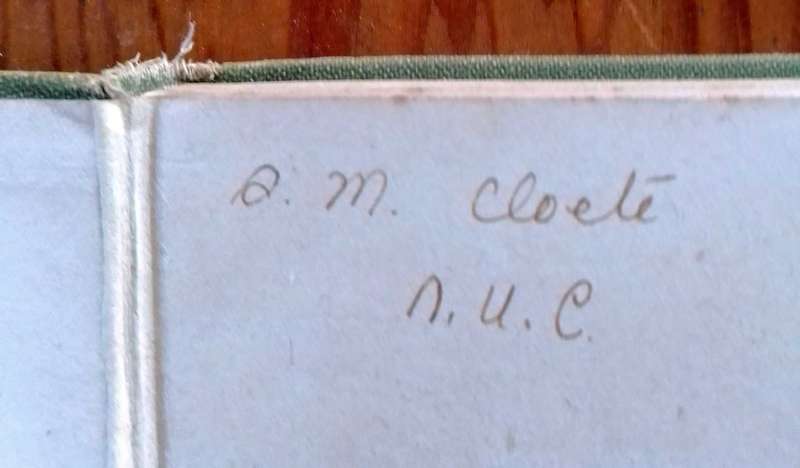 a. M. Cloete
N. U. C.